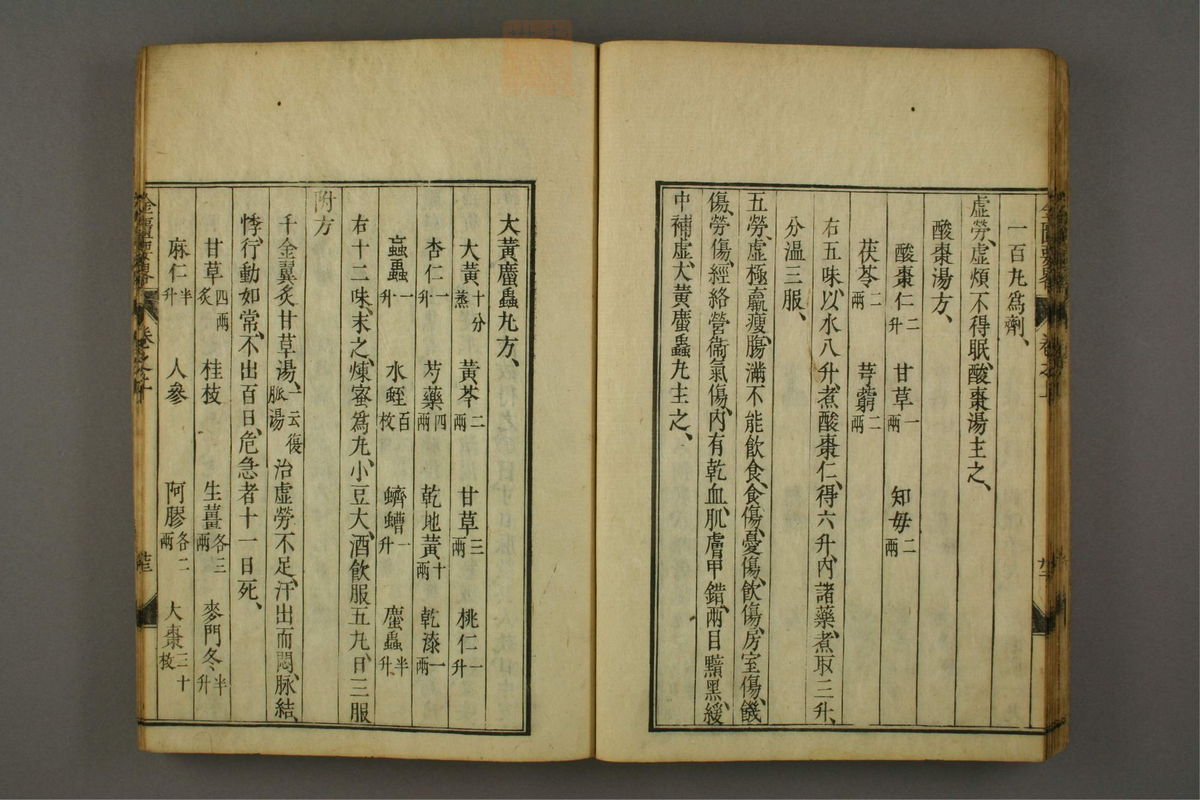 一百丸爲劑、
虛勞、虛煩不得眠、酸棗湯主之、
酸棗湯方、
酸棗仁二升 甘草一兩 知母二兩
茯苓二兩 芎藭二兩
右五味、以水八升、煮酸棗仁、得六升、內諸藥、煮取三升、
分溫三服、
五勞、虛極羸瘦、腸滿不能飲食、食傷、憂傷、飲傷、房室傷、饑
傷、勞傷、經絡營衞氣傷、內有乾血、肌膚甲錯、兩目黯黑、緩
中補虛、大黃䗪蟲丸主之、
大黃䗪蟲丸方、
大黃十分蒸 黃芩二兩 甘草三兩 桃仁一升
杏仁一升 芍藥四兩 乾地黃十兩 乾漆一兩
蝱蟲一升 水蛭百枚 蠐螬一升 䗪蟲半升、
右十二味、末之、煉蜜爲丸、小豆大、酒飲服五丸、日三服
附方
千金翼炙甘草湯、一云復脈湯 治虛勞不足、汗出而悶、脉結、
悸、行動如常、不出百日、危急者十一日死、
甘草四兩炙 桂枝 生薑各三兩 麥門冬半升
麻仁半升 人參 阿膠各二兩 大棗三十枚